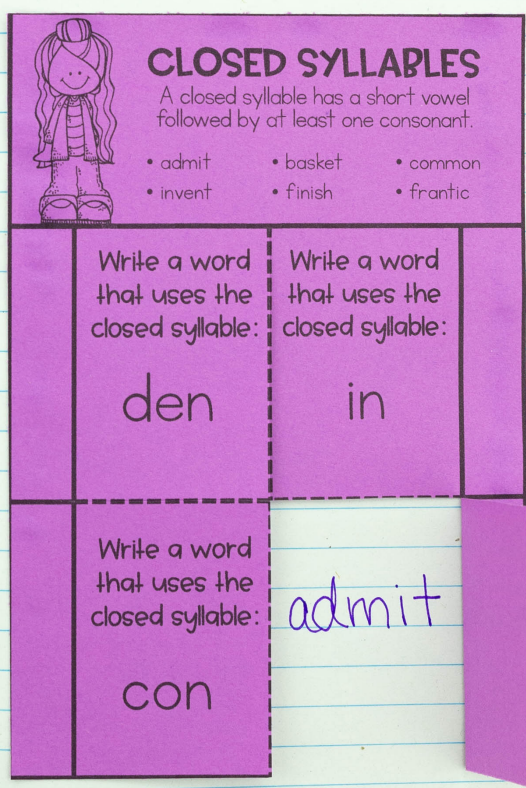 CLOSED SYLLABLES
A closed syllable has a short vowel
followed by at least one consonant.
• admit • basket • common
• invent • finish • frantic
Write a word
that uses the
closed syllable:
den
Write a word
that uses the
closed syllable:
in
Write a word
that uses the
closed syllable:
con
admit